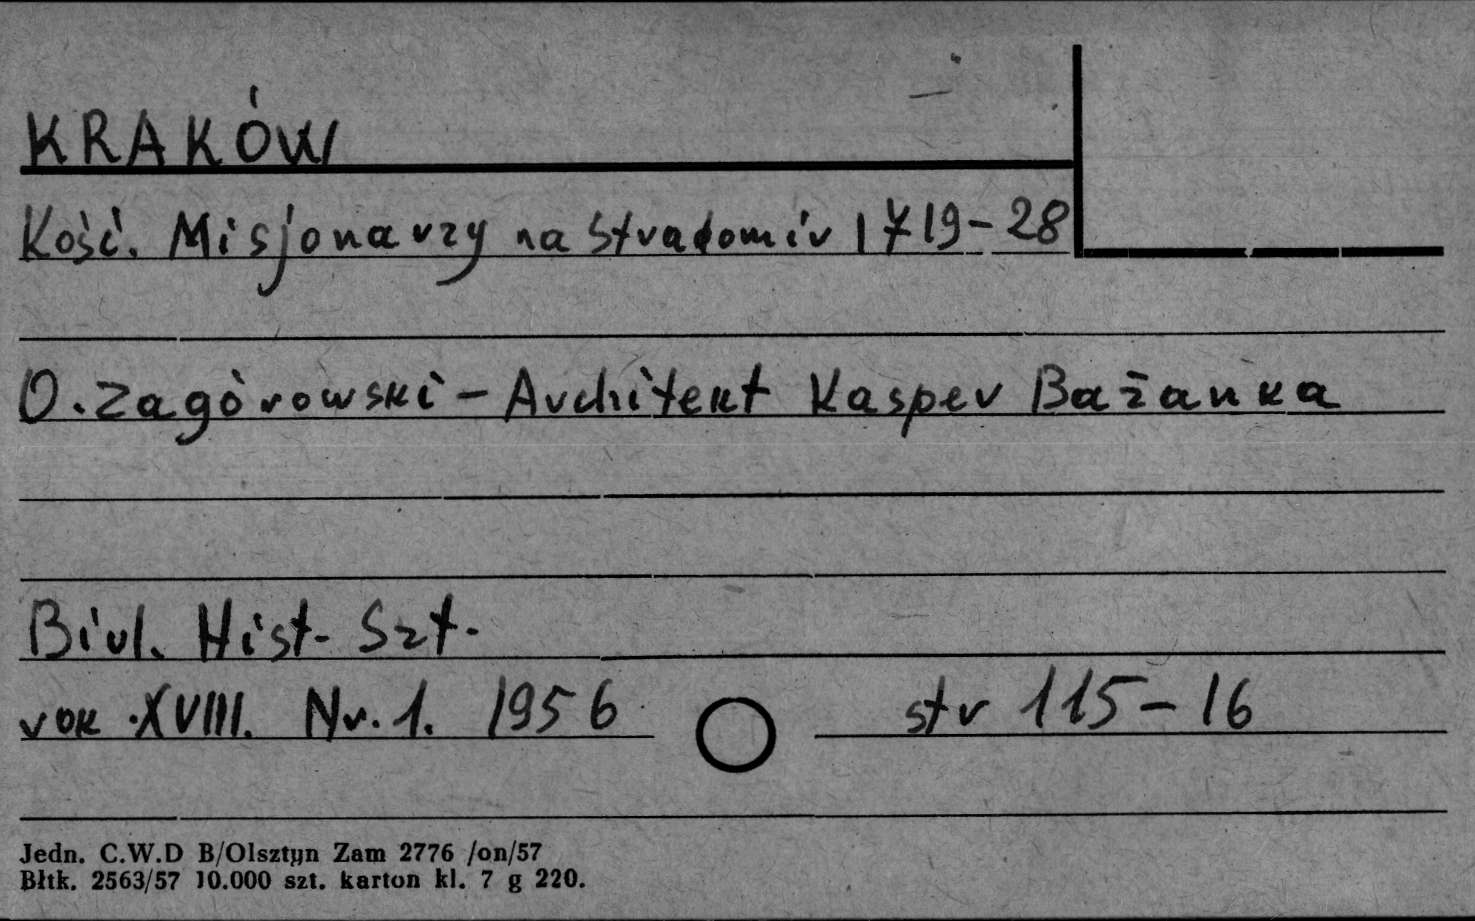 KRAKÓW
Kość. Misjonarzy na Stradomiu 1719-28
O. Zagórowski - Architekt Kasper Bażanka
Biul. Hist. Szt.
rok XVIII. Nr. 1. 1956 str 115-16
Jedn. C.W.D B/Olsztyn Zam 2776 /on/57
Błtk. 2563/57 10.000 szt. karton kl. 7 g 220.